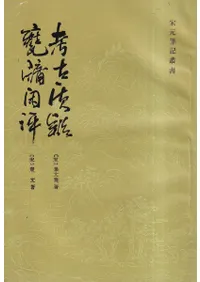 宋元筆記叢書
考古質疑
甕牖閒評
[宋]葉大慶 著
[宋]袁文 著